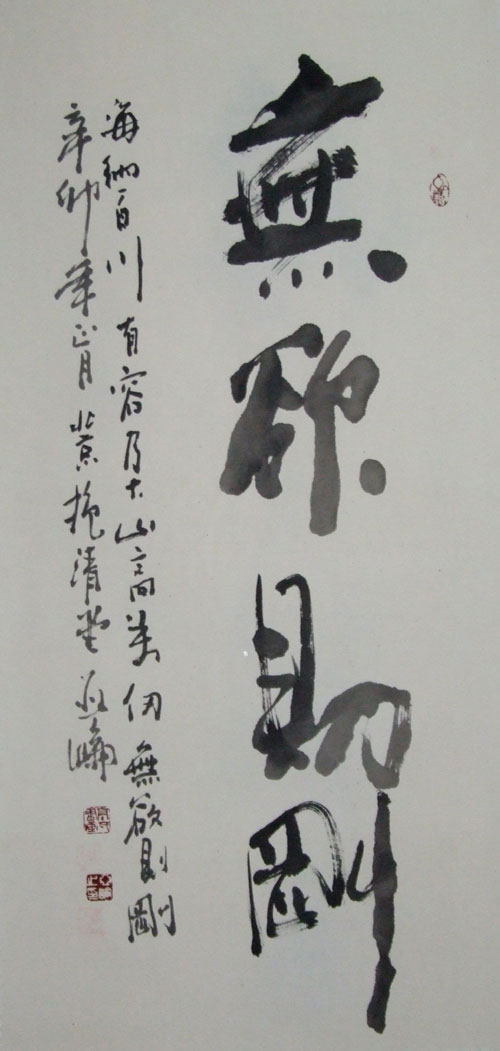 無欲則剛
海納百川 有容乃大 山高萬仞 無欲則剛
辛卯年正月 北京 清堂